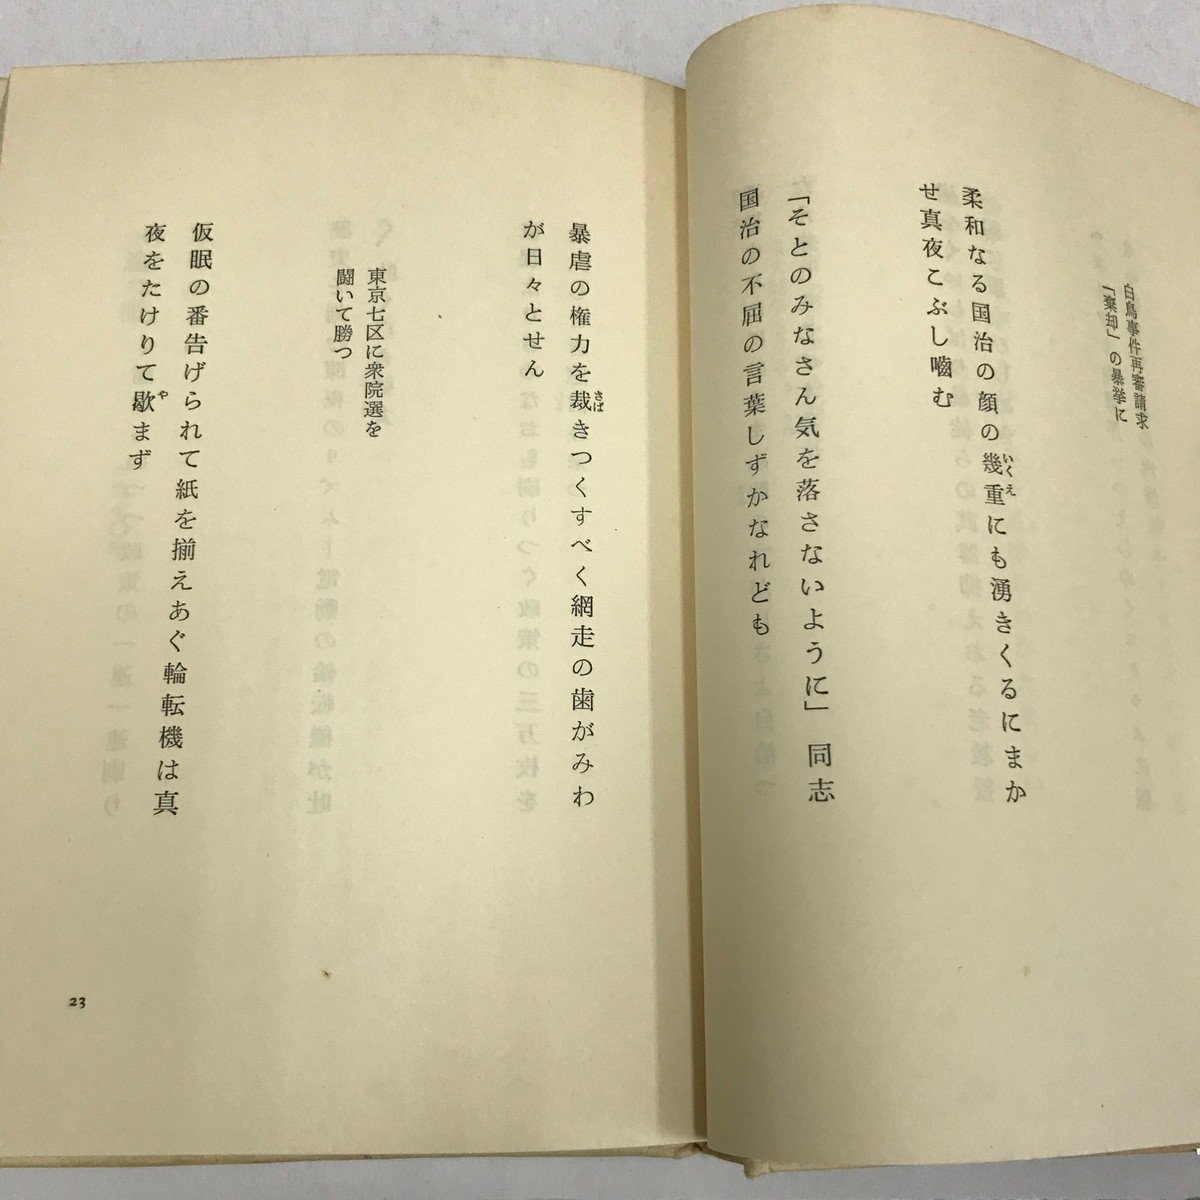 白鳥事件再審請求
「棄却」の暴挙に
柔和なる国治の顔の幾重にも湧きくるにまか
いくえ
せ真夜こぶし嚙む
「そとのみなさん気を落さないように」同志
国治の不屈の言葉しずかなれども
暴虐の権力を裁きつくすべく網走の歯がみわ
さば
が日々とせん
東京七区に衆院選を
闘いて勝つ
仮眠の番告げられて紙を揃えあぐ輪転機は真
夜をたけりて歇まず
や
23